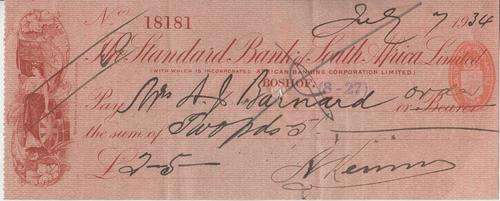 No 18181 July 7 1934
The Standard Bank of South Africa Limited
(WITH WHICH IS INCORPORATED AFRICAN BANKING CORPORATION LIMITED.)
BOSHOF.
Pay Mrs A. J. Barnard or Bearer
the sum of Two pds 5
£ 2-5-